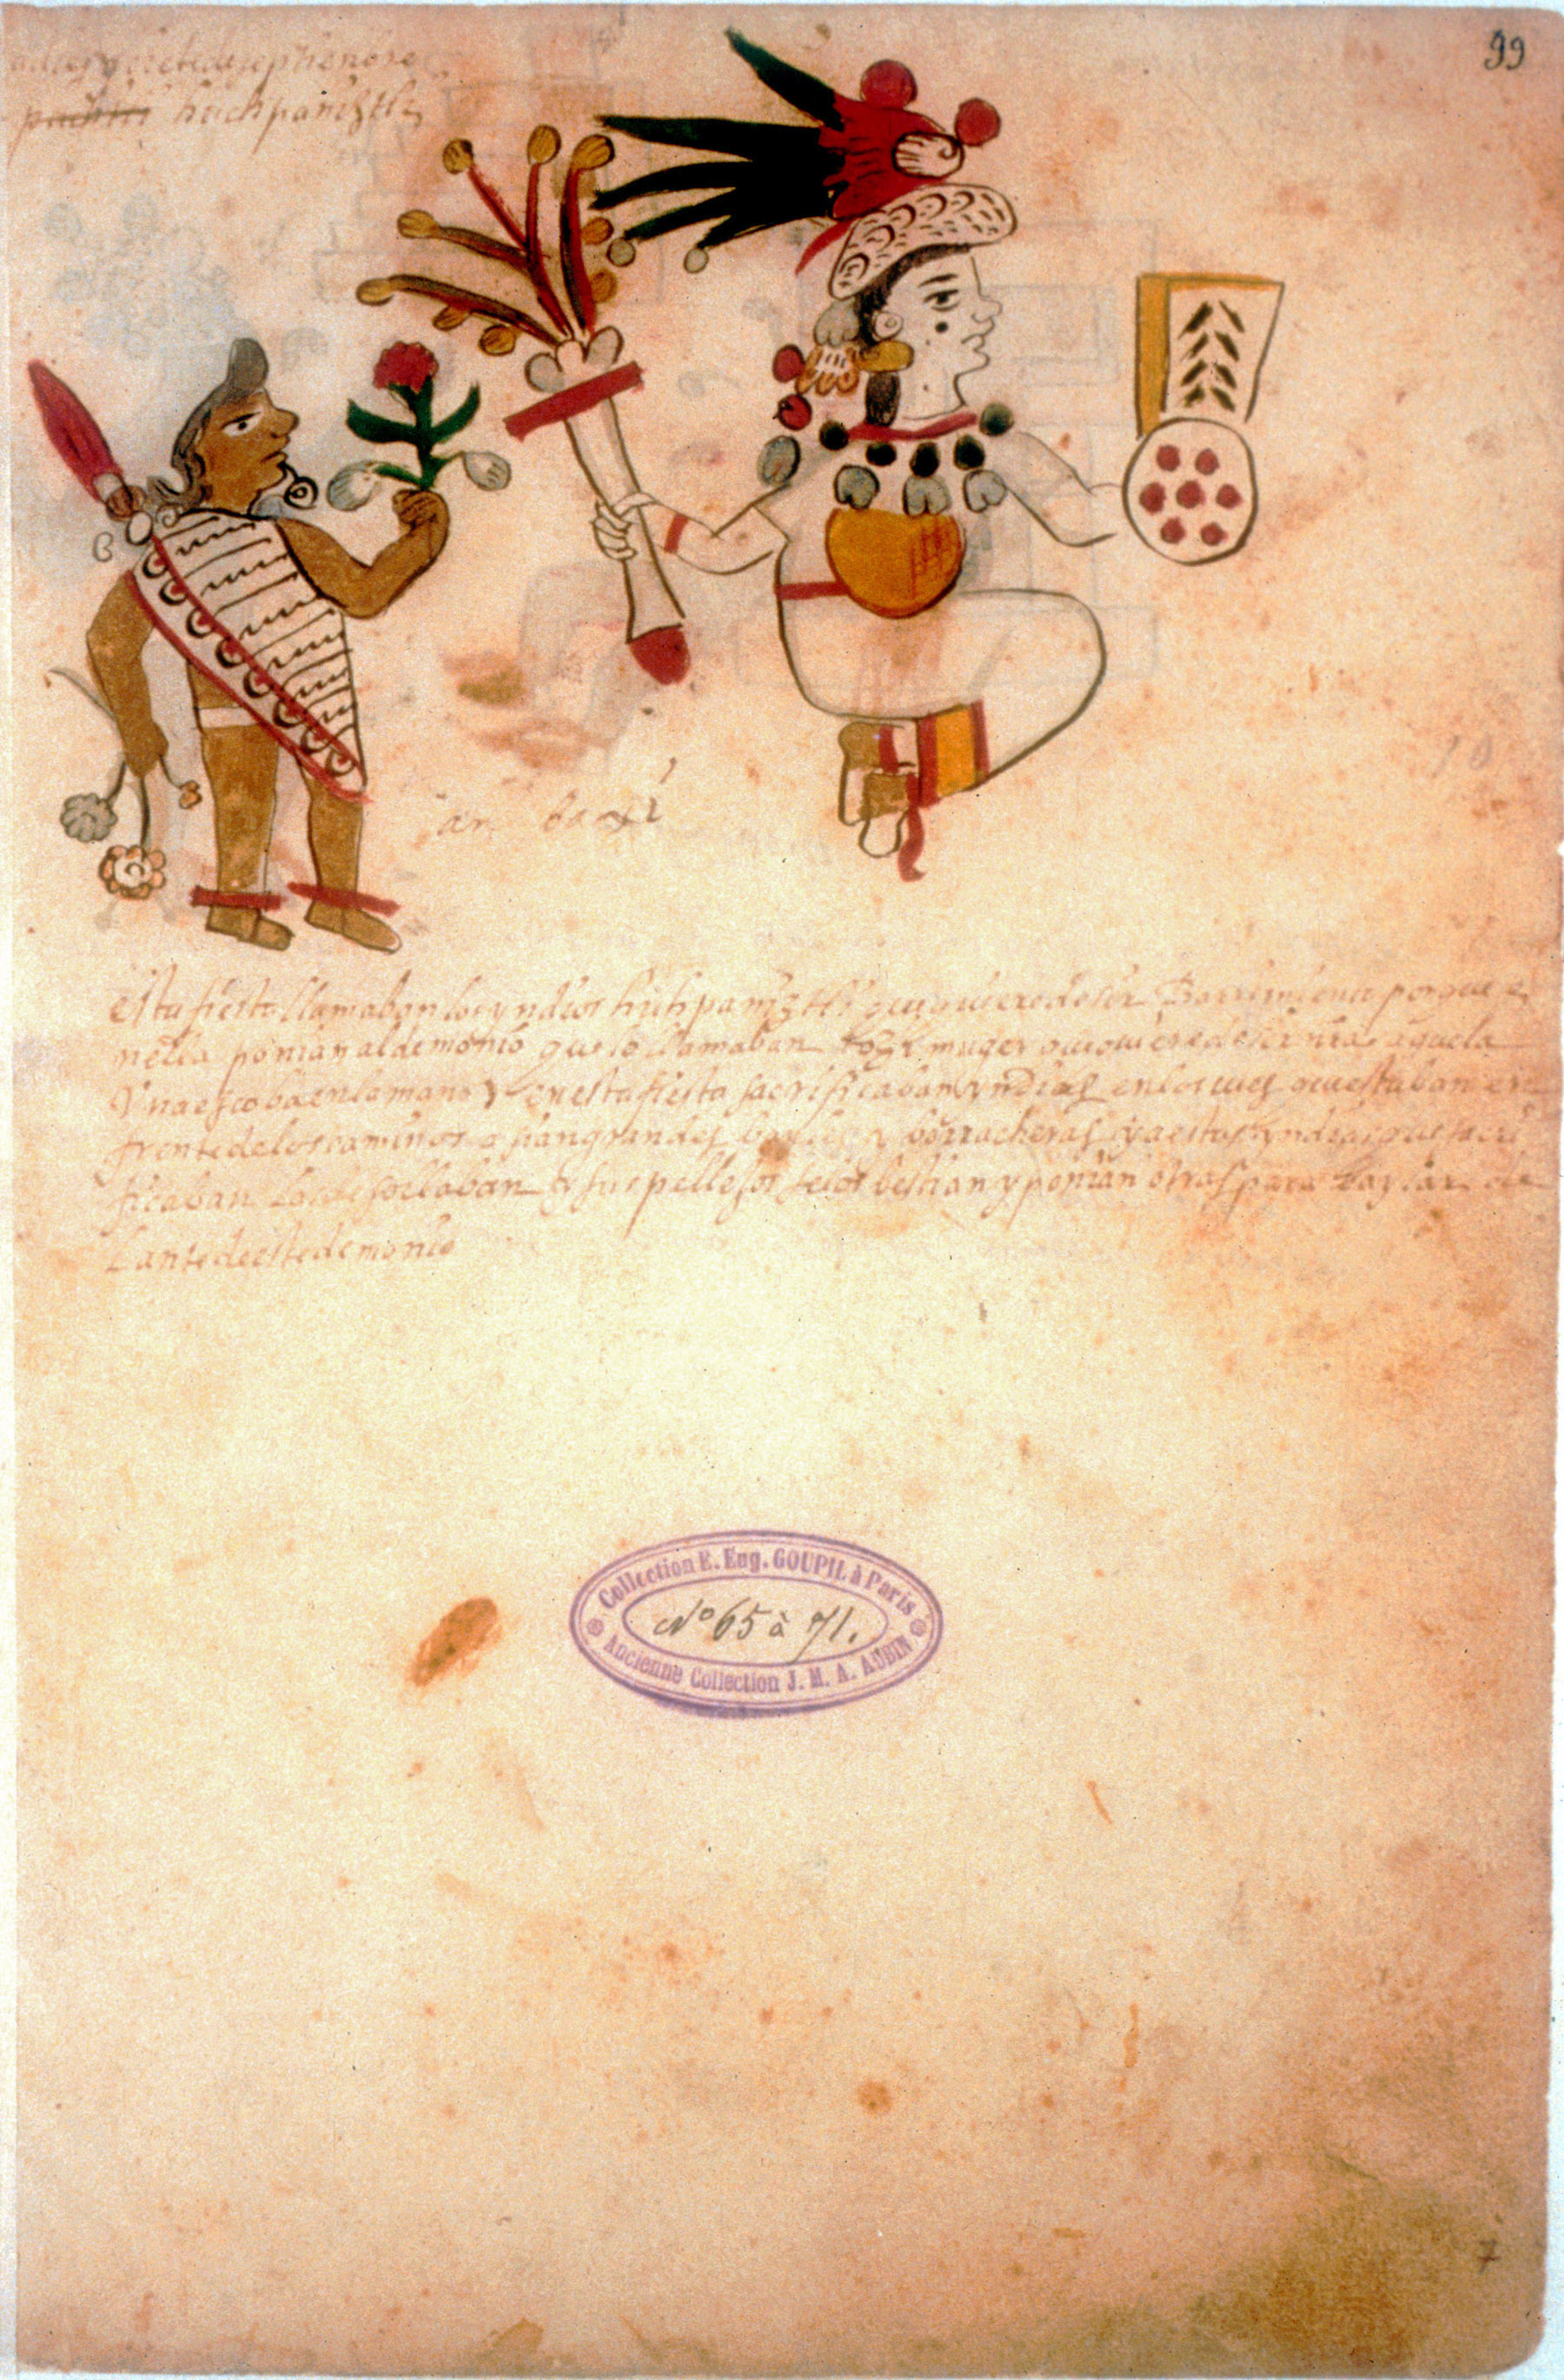 99
a diez y siete de septienbre
pachtli huchpaniztli
esta fiesta llamaban los yndios huhpaniztli que quiere desir Barrimiento porque e
nella ponian al demonio que lo llamaban tozi muger que quiere desir nra aguela
Vna escoba en la mano y en esta fiesta sacrificaban yndias en los cues que estaban en
frente de los caminos asian grandes bayles y borracheras y a estas yndias que sacri
ficaban las desollaban y sus pellejos se los bestian y ponian otras para baylar de
Lante de este demonio
Collection E. Eug. GOUPIL à Paris
No 65 à 71.
Ancienne Collection J. M. A. AUBIN
7